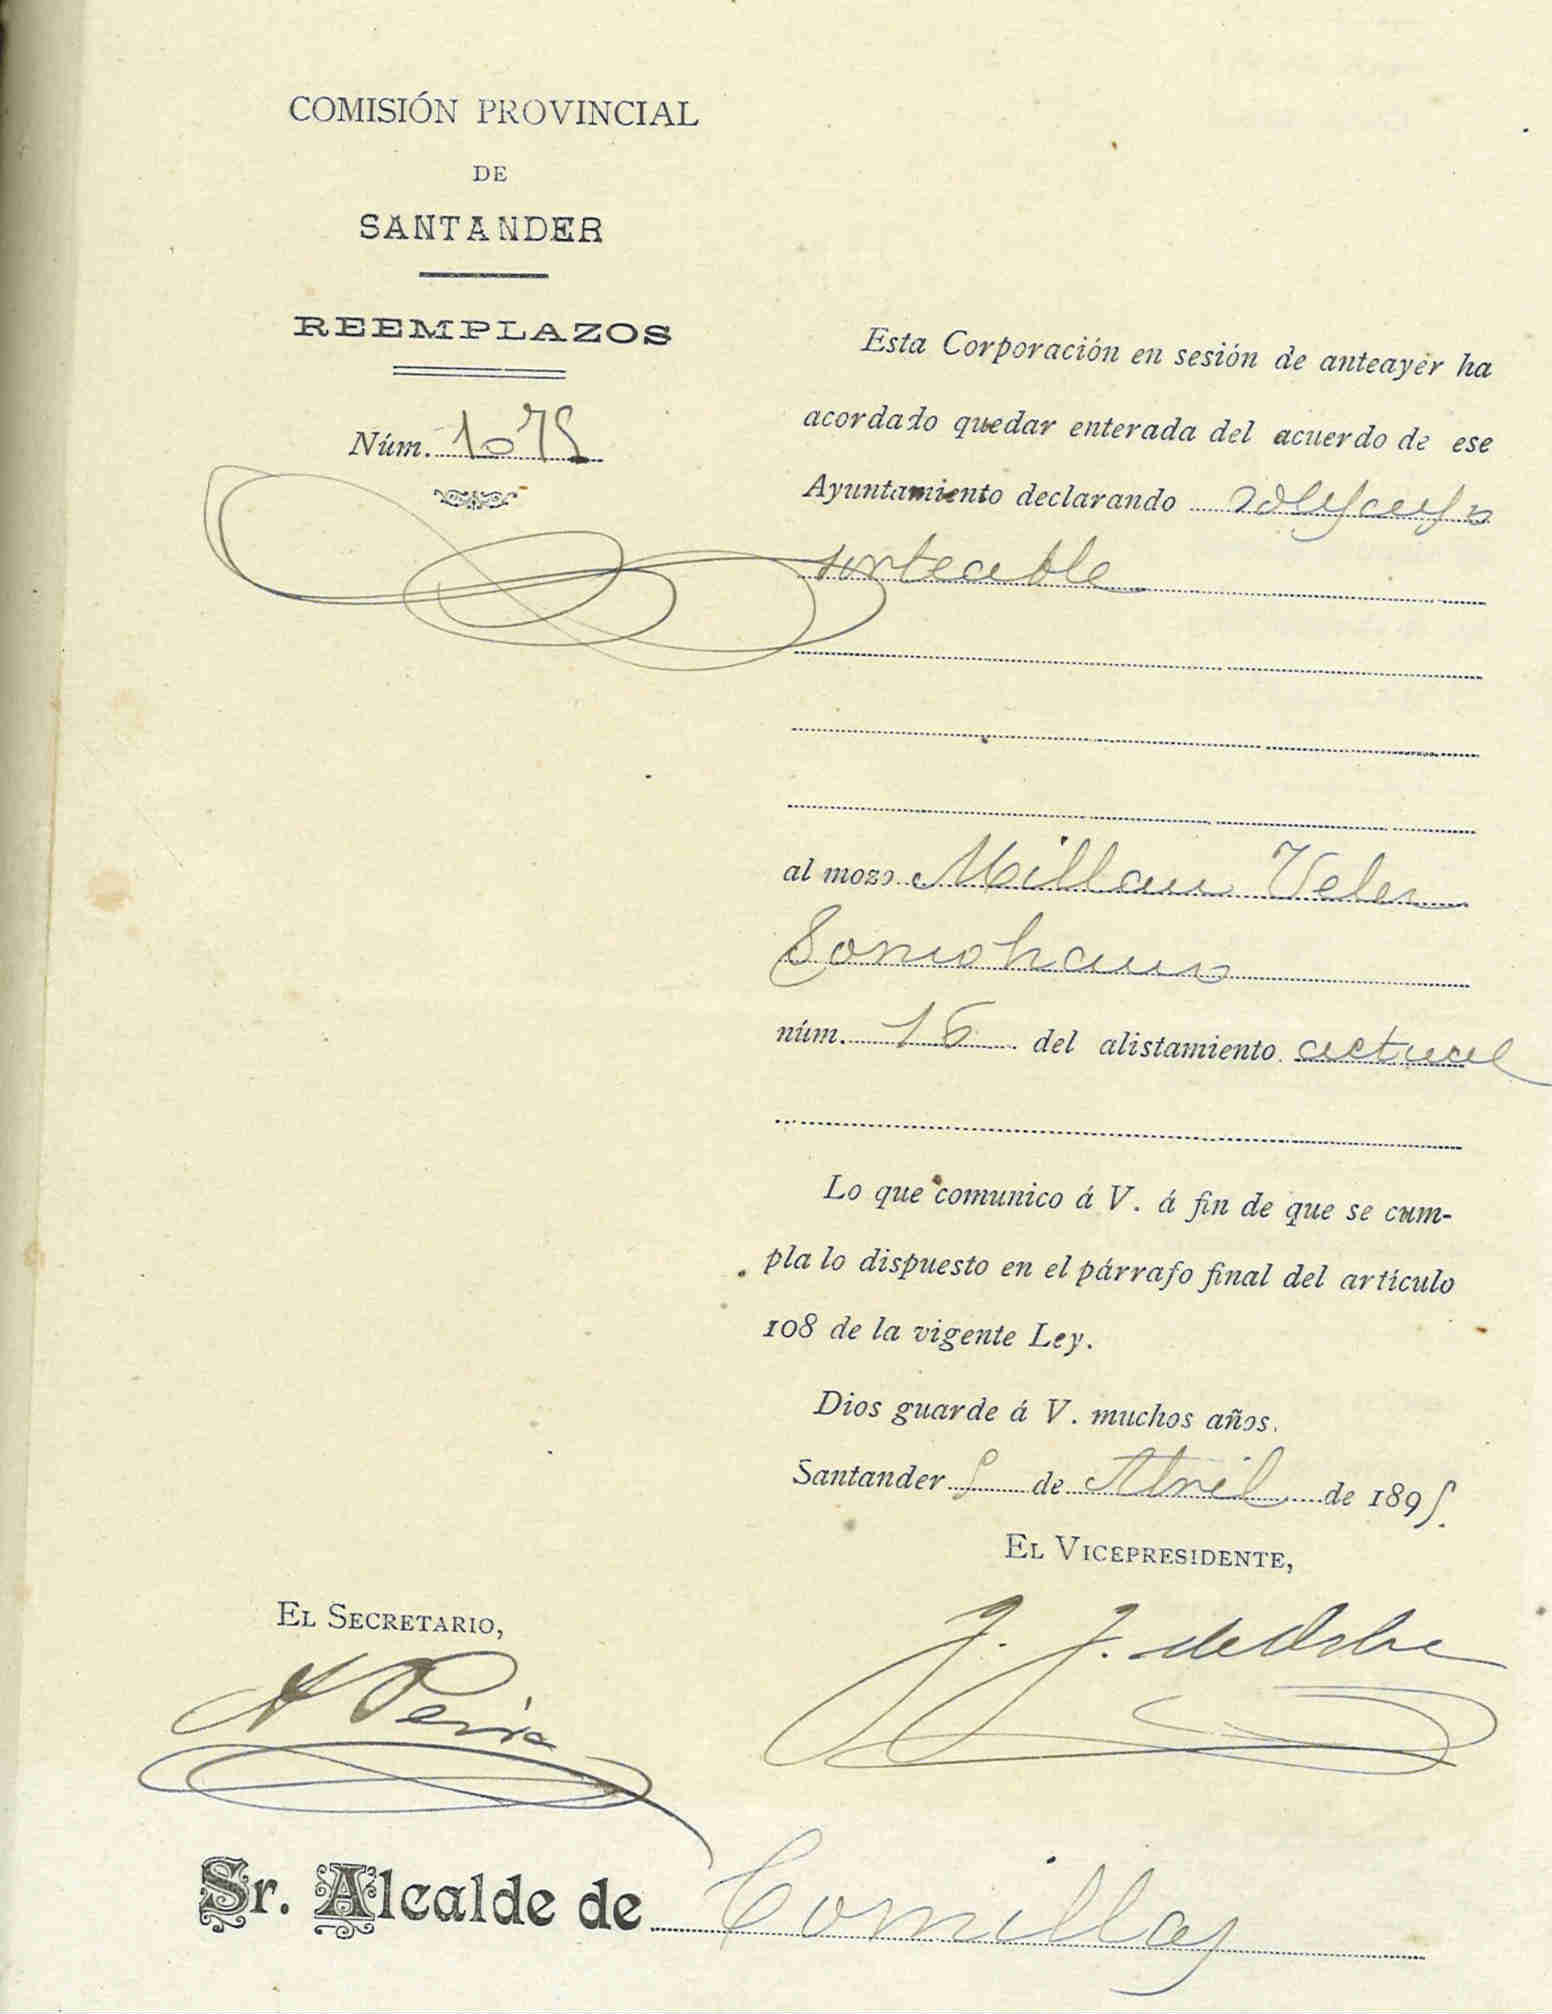 COMISIÓN PROVINCIAL
DE
SANTANDER
REEMPLAZOS
Núm. 1075
Esta Corporación en sesión de anteayer ha
acordado quedar enterada del acuerdo de ese
Ayuntamiento declarando soldado
sorteable
al mozo Millan Velez
Somohano
núm. 16 del alistamiento actual
Lo que comunico á V. á fin de que se cum-
pla lo dispuesto en el párrafo final del artículo
108 de la vigente Ley.
Dios guarde á V. muchos años.
Santander 5 de Abril de 1895.
EL VICEPRESIDENTE,
J. J. de
EL SECRETARIO,
A
Sr. Alcalde de Comillas